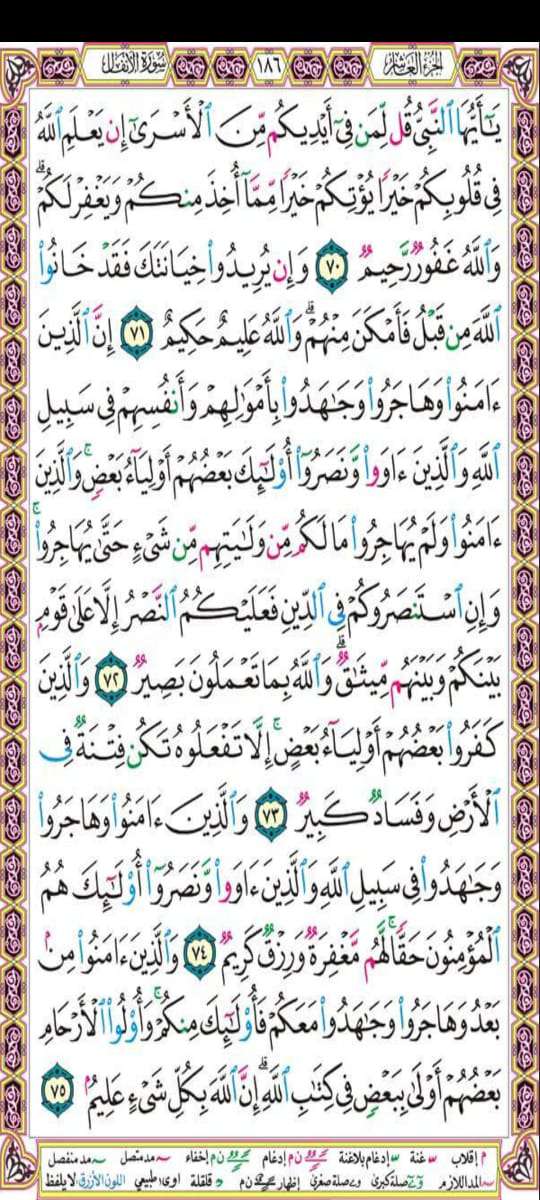 الجزء العاشر ١٨٦ سورة الأنفال
يَٰٓأَيُّهَا ٱلنَّبِيُّ قُل لِّمَن فِىٓ أَيْدِيكُم مِّنَ ٱلْأَسْرَىٰٓ إِن يَعْلَمِ ٱللَّهُ
فِى قُلُوبِكُمْ خَيْرًا يُؤْتِكُمْ خَيْرًا مِّمَّآ أُخِذَ مِنكُمْ وَيَغْفِرْ لَكُمْ ۗ
وَٱللَّهُ غَفُورٌ رَّحِيمٌ ٧٠ وَإِن يُرِيدُوا۟ خِيَانَتَكَ فَقَدْ خَانُوا۟
ٱللَّهَ مِن قَبْلُ فَأَمْكَنَ مِنْهُمْ ۗ وَٱللَّهُ عَلِيمٌ حَكِيمٌ ٧١ إِنَّ ٱلَّذِينَ
ءَامَنُوا۟ وَهَاجَرُوا۟ وَجَٰهَدُوا۟ بِأَمْوَٰلِهِمْ وَأَنفُسِهِمْ فِى سَبِيلِ
ٱللَّهِ وَٱلَّذِينَ ءَاوَوا۟ وَّنَصَرُوٓا۟ أُو۟لَٰٓئِكَ بَعْضُهُمْ أَوْلِيَآءُ بَعْضٍ ۚ وَٱلَّذِينَ
ءَامَنُوا۟ وَلَمْ يُهَاجِرُوا۟ مَا لَكُم مِّن وَلَٰيَتِهِم مِّن شَىْءٍ حَتَّىٰ يُهَاجِرُوا۟ ۚ
وَإِنِ ٱسْتَنصَرُوكُمْ فِى ٱلدِّينِ فَعَلَيْكُمُ ٱلنَّصْرُ إِلَّا عَلَىٰ قَوْمٍۭ
بَيْنَكُمْ وَبَيْنَهُم مِّيثَٰقٌ ۗ وَٱللَّهُ بِمَا تَعْمَلُونَ بَصِيرٌ ٧٢ وَٱلَّذِينَ
كَفَرُوا۟ بَعْضُهُمْ أَوْلِيَآءُ بَعْضٍ ۚ إِلَّا تَفْعَلُوهُ تَكُن فِتْنَةٌ فِى
ٱلْأَرْضِ وَفَسَادٌ كَبِيرٌ ٧٣ وَٱلَّذِينَ ءَامَنُوا۟ وَهَاجَرُوا۟
وَجَٰهَدُوا۟ فِى سَبِيلِ ٱللَّهِ وَٱلَّذِينَ ءَاوَوا۟ وَّنَصَرُوٓا۟ أُو۟لَٰٓئِكَ هُمُ
ٱلْمُؤْمِنُونَ حَقًّا ۚ لَّهُم مَّغْفِرَةٌ وَرِزْقٌ كَرِيمٌ ٧٤ وَٱلَّذِينَ ءَامَنُوا۟ مِنۢ
بَعْدُ وَهَاجَرُوا۟ وَجَٰهَدُوا۟ مَعَكُمْ فَأُو۟لَٰٓئِكَ مِنكُمْ ۚ وَأُو۟لُوا۟ ٱلْأَرْحَامِ
بَعْضُهُمْ أَوْلَىٰ بِبَعْضٍ فِى كِتَٰبِ ٱللَّهِ ۗ إِنَّ ٱللَّهَ بِكُلِّ شَىْءٍ عَلِيمٌۢ ٧٥
م إقلاب غنة إدغام بلاغنة ن م إدغام ن م إخفاء مد متصل مد منفصل
المد اللازم صلة كبرى صلة صغرى إظهار ن م قلقلة طبيعي اللون الأزرق: لا يلفظ